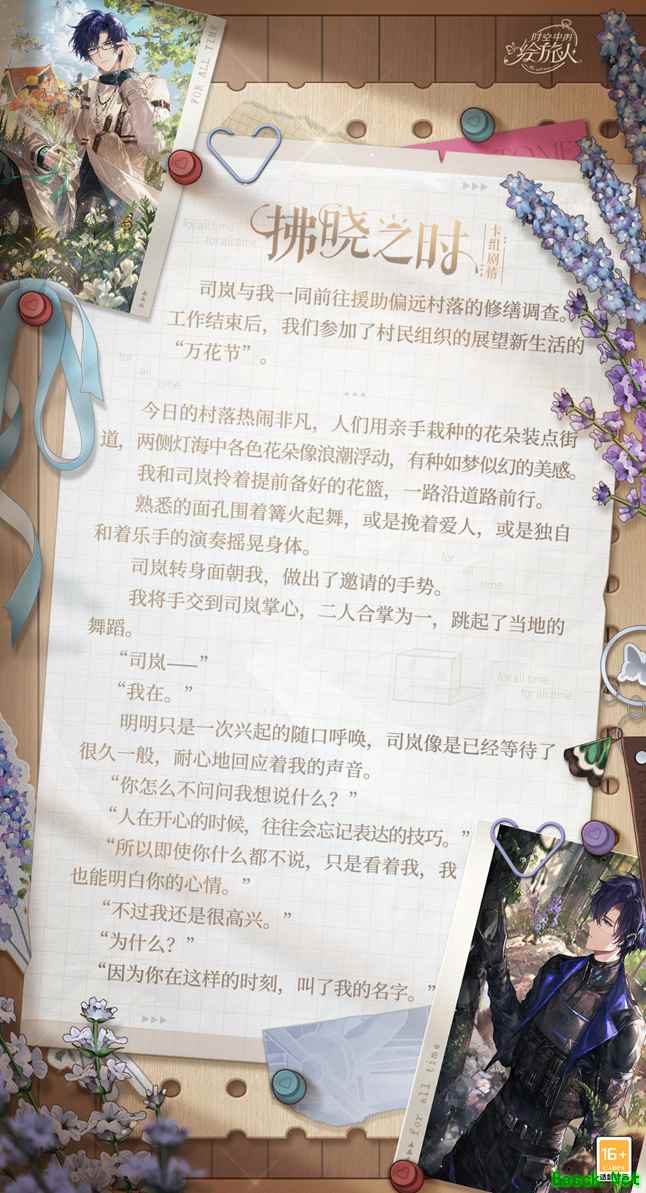 FOR ALL TIME
时空中的
绘旅人
for all time
for all time
拂晓之时
卡组剧情
司岚与我一同前往援助偏远村落的修缮调查。
工作结束后，我们参加了村民组织的展望新生活的
“万花节”。
for
all
time
今日的村落热闹非凡，人们用亲手栽种的花朵装点街
道，两侧灯海中各色花朵像浪潮浮动，有种如梦似幻的美感。
我和司岚拎着提前备好的花篮，一路沿道路前行。
熟悉的面孔围着篝火起舞，或是挽着爱人，或是独自
和着乐手的演奏摇晃身体。
for
all
time
司岚转身面朝我，做出了邀请的手势。
我将手交到司岚掌心，二人合掌为一，跳起了当地的
舞蹈。
“司岚——”
“我在。”
for all time
for all time
明明只是一次兴起的随口呼唤，司岚像是已经等待了
很久一般，耐心地回应着我的声音。
“你怎么不问问我想说什么？”
“人在开心的时候，往往会忘记表达的技巧。”
“所以即使你什么都不说，只是看着我，我
也能明白你的心情。”
“不过我还是很高兴。”
“为什么？”
“因为你在这样的时刻，叫了我的名字。”
for all time
16+